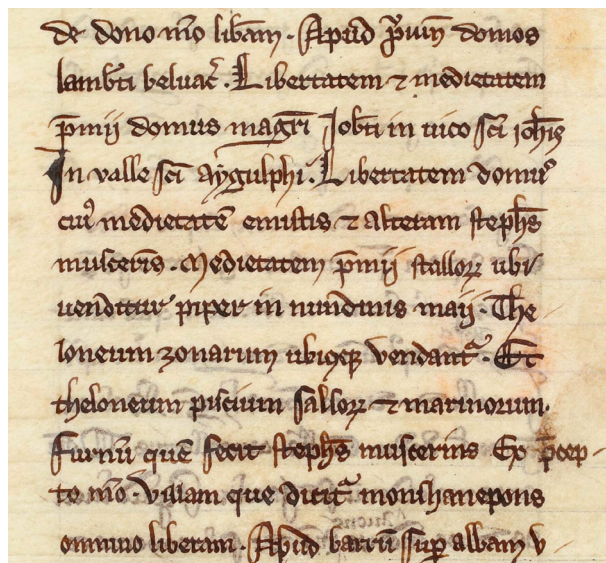 de dono nr̄o libam̄ · Apud p̄uin̄ domos
lamb̄ti beluac̄ · Libertatem ⁊ medietatem
p̄mij domus magr̄i Rob̄ti in uico sc̄i ioh̄is
In valle sc̄i aygulphi · Libertatem domꝰ
cuiꝰ medietatē emistis ⁊ alteram steph̄s
musceriꝰ · Medietatem p̄mij stalloꝝ ubi
uenditur piper in nundinis maij · The
loneum zonarum ubiqꝫ vendant᷑ · Et
theloneum piscium salloꝝ ⁊ marinorum ·
furnū quē fecit steph̄s muscerius Ex p̄cep
to nr̄o · villam que dicit᷑ monshanepons
omnino liberam · Apud barrū suꝑ albam v